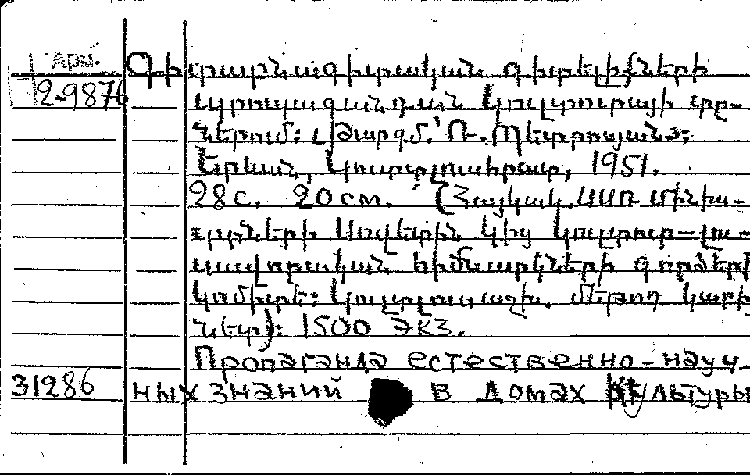 Арм.
2-9876
Գիտաբնագիտական գիտելիքների
պրոպագանդան կուլտուրայի տը-
ներում: [Թարգմ.՝ Ռ. Պետրոսյանը:
Երևան, Կուլտլուսհրատ, 1951.
28 с. 20 см. (Հայկական ՍՍՌ Մինիս-
տրների Սովետին կից կուլտուր-լու-
սավորական հիմնարկների գործերի
կոմիտե: Կուլտլուսաշխ. մեթոդ կաբի-
նետ): 1500 экз.
Пропаганда естественно-науч-
31286 ных знаний в домах культуры